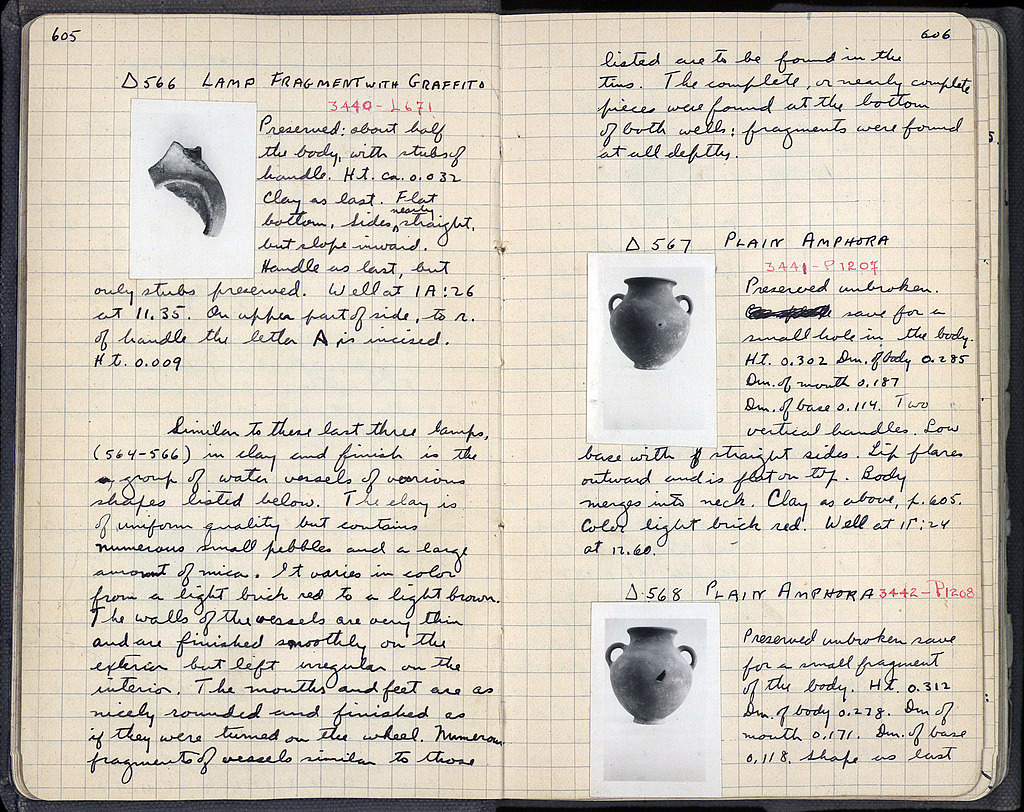 605
Δ 566 LAMP FRAGMENT WITH GRAFFITO
3440-L671
Preserved: about half
the body, with stubs of
handle. Ht. ca. 0.032
Clay as last. Flat
bottom, sides nearly straight,
but slope inward.
Handle as last, but
only stubs preserved. Well at 1A:26
at 11.35. On upper part of side, to r.
of handle the letter A is incised.
Ht. 0.009
Similar to these last three lamps,
(564-566) in clay and finish is the
group of water vessels of various
shapes listed below. The clay is
of uniform quality but contains
numerous small pebbles and a large
amount of mica. It varies in color
from a light brick red to a light brown.
The walls of the vessels are very thin
and are finished smoothly on the
exterior but left irregular on the
interior. The mouths and feet are as
nicely rounded and finished as
if they were turned on the wheel. Numerous
fragments of vessels similar to those
606
listed are to be found in the
tins. The complete, or nearly complete
pieces were found at the bottom
of both wells; fragments were found
at all depths.
Δ 567 PLAIN AMPHORA
3441-P1207
Preserved unbroken.
save for a
small hole in the body.
Ht. 0.302 Dm. of body 0.285
Dm. of mouth 0.187
Dm. of base 0.114. Two
vertical handles. Low
base with straight sides. Lip flares
outward and is flat on top. Body
merges into neck. Clay as above, p. 605.
Color light brick red. Well at
at 12.60.
Δ 568 PLAIN AMPHORA 3442-P1208
Preserved unbroken save
for a small fragment
of the body. Ht. 0.312
Dm. of body 0.278. Dm. of
mouth 0.171. Dm. of base
0.118. Shape as last